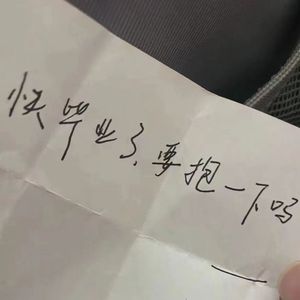 快毕业了、要抱一下吗